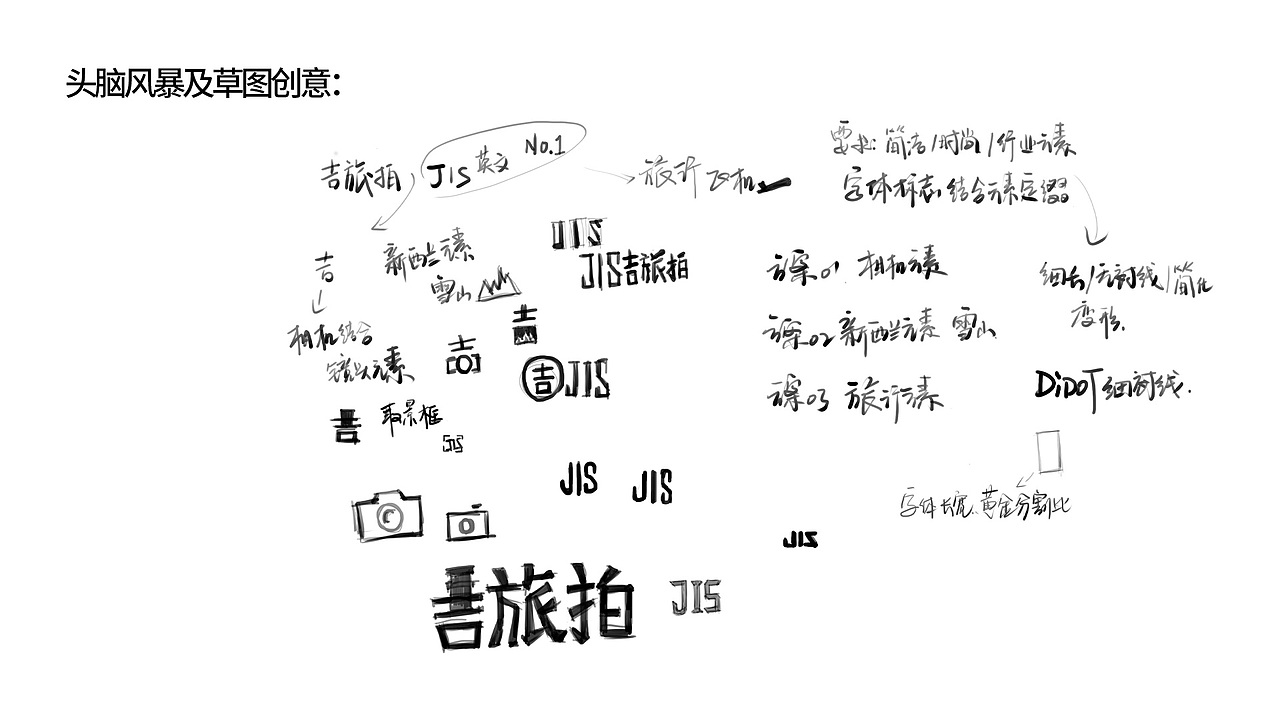 头脑风暴及草图创意：
要求: 简洁/时尚/行业元素
字体标志 结合元素点缀
吉旅拍
JIS 英文 No.1
旅行 飞机
吉
新西兰元素
雪山
JIS
JIS吉旅拍
方案01 相机元素
细长/无衬线/简化
变形.
相机结合
镜头元素
吉
吉
方案02 新西兰元素 雪山
吉JIS
方案03 旅行元素
DiDOT细衬线.
吉
取景框
JIS
JIS
JIS
字体长宽.黄金分割比
JIS
吉旅拍
JIS